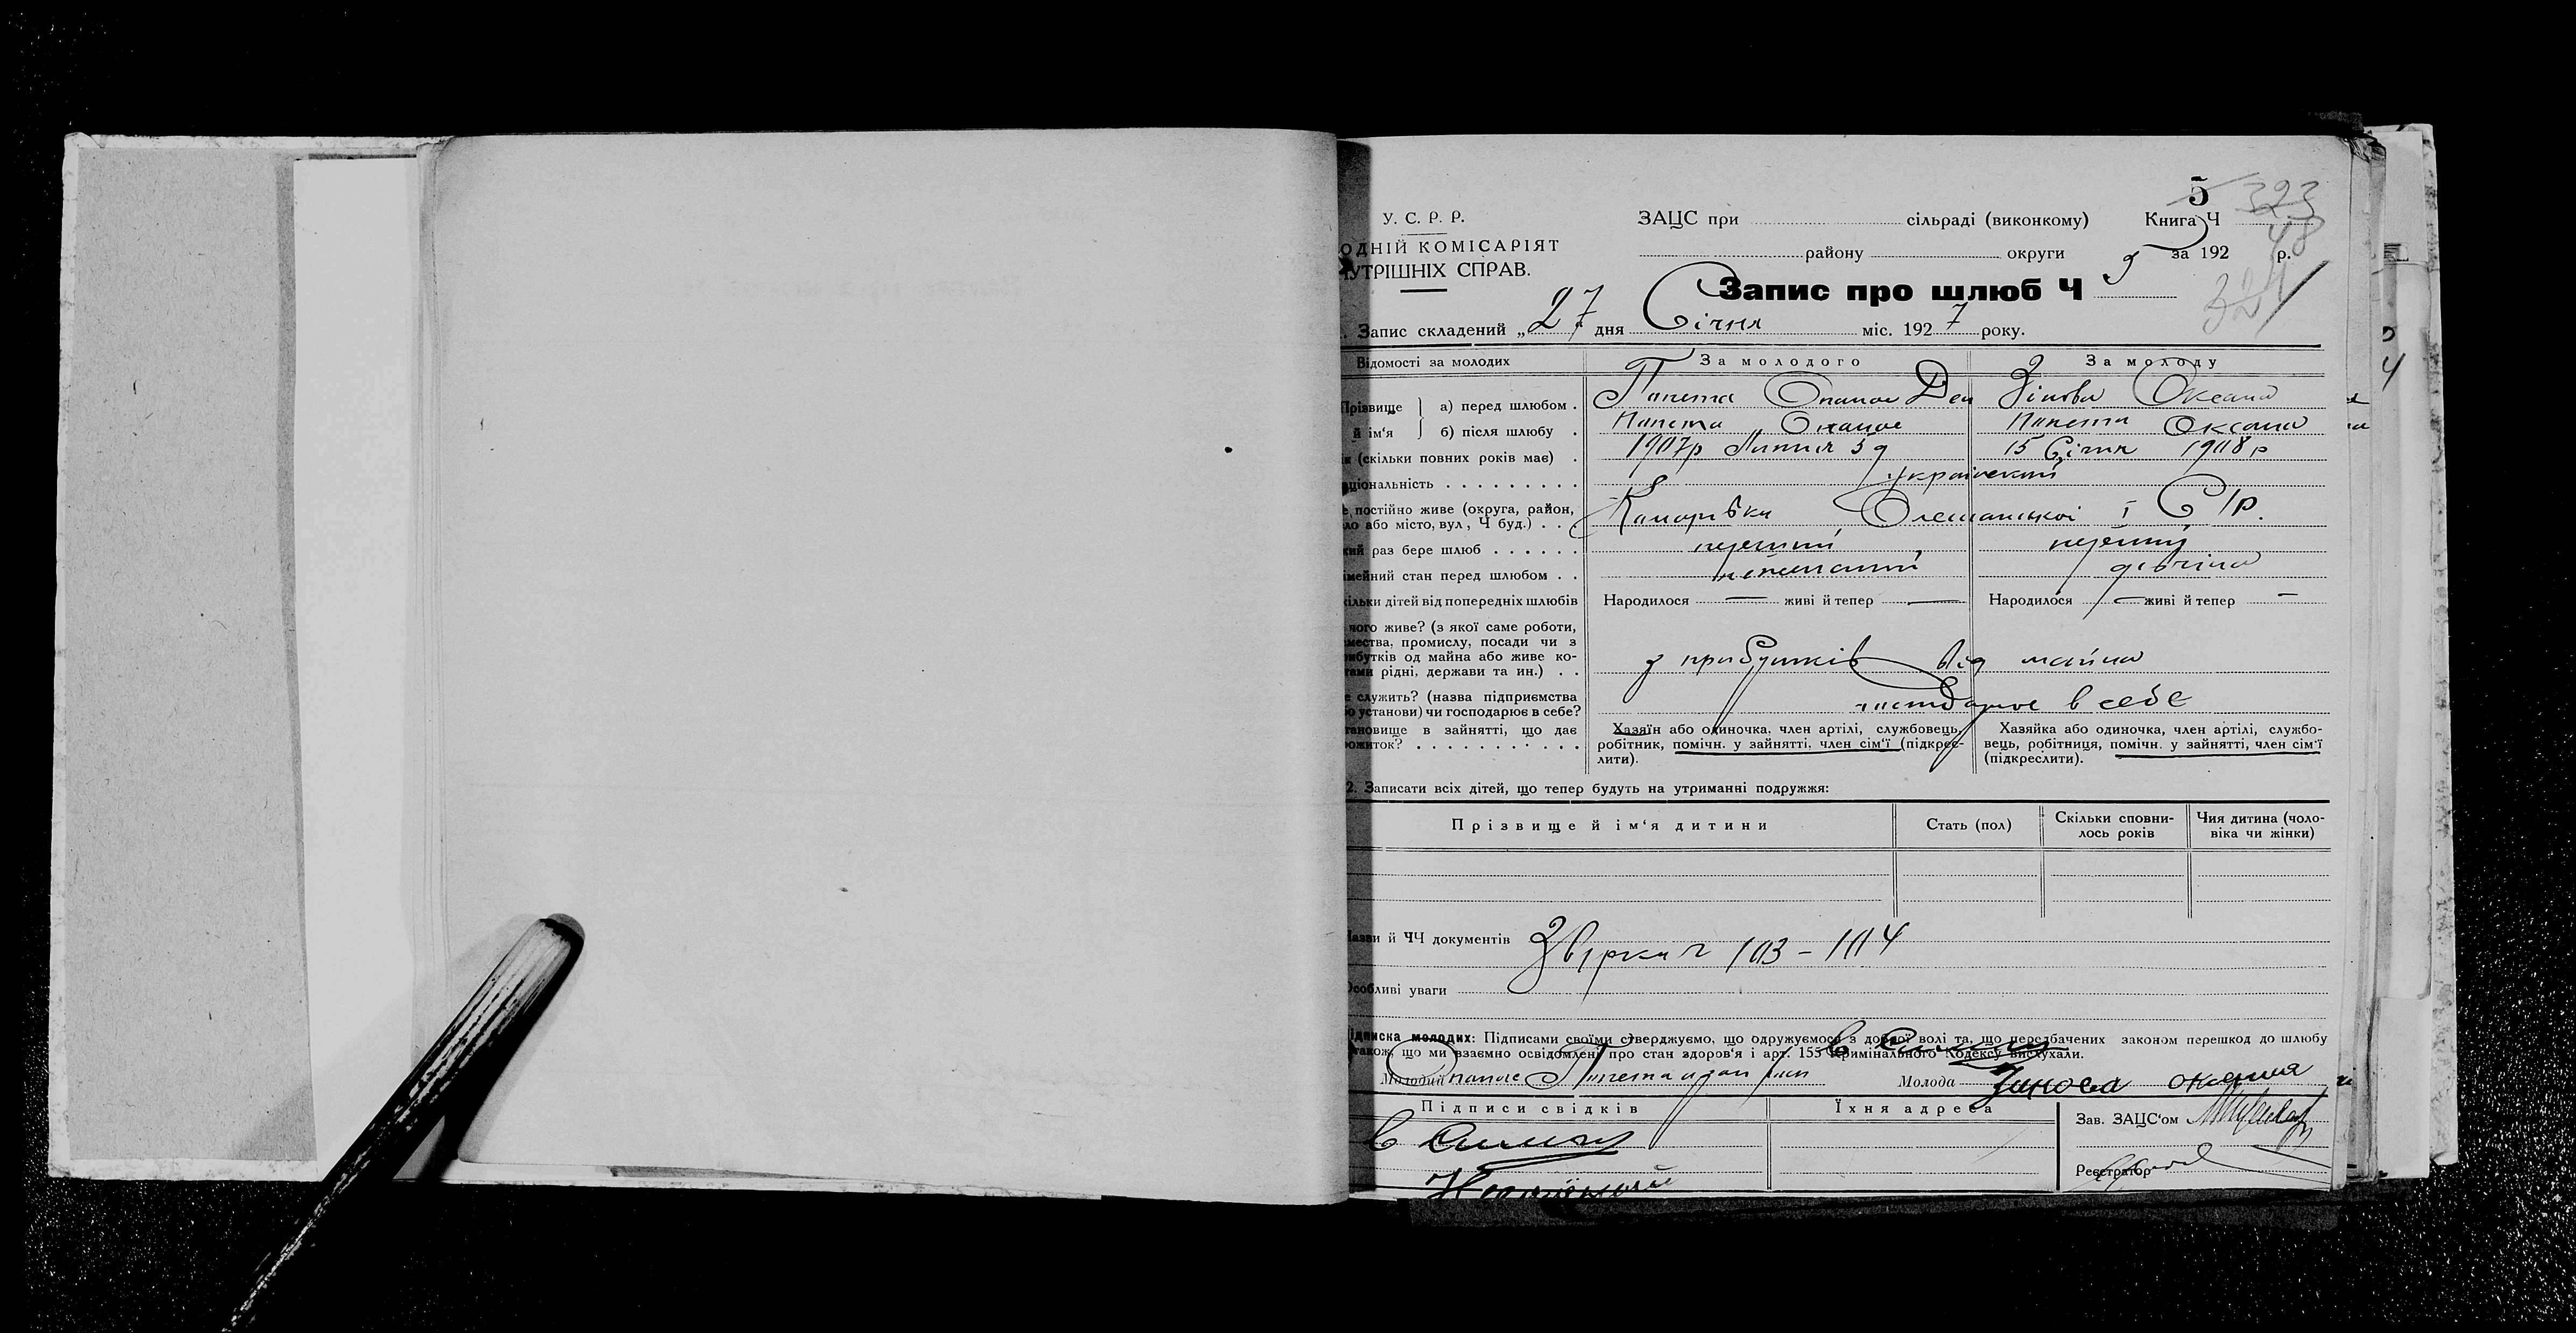 5 323
У. С. Р. Р. ЗАЦС при сільраді (виконкому) Книга Ч 48
ОДНІЙ КОМІСАРІЯТ району округи за 192 р.
УТРІШНІХ СПРАВ.
Запис про шлюб Ч 5 324
Запис складений „27" дня Січня міс. 1927 року.
Відомості за молодих За молодого За молоду
Прізвище й ім'я а) перед шлюбом . Папета Опанас Дем Зінова Оксана
б) після шлюбу . Папета Опанас Папета Оксана
(скільки повних років має) . 1907р Липня 5 д 15 Січня 1908 р
ціональність . . . . . . . . . український
постійно живе (округа, район,
або місто, вул, Ч буд.) . . Олешанської І С/р.
раз бере шлюб . . . . . . перший перший
мейний стан перед шлюбом . . дівчина
кільки дітей від попередніх шлюбів Народилося — живі й тепер — Народилося — живі й тепер —
чого живе? (з якої саме роботи,
мества, промислу, посади чи з
ибутків од майна або живе ко-
тами рідні, держави та ин.) . . з прибутків від майна
служить? (назва підприємства
установи) чи господарює в себе? господарює в себе
тановище в зайнятті, що дає
ожиток? . . . . . . . . . . .
Хазяїн або одиночка, член артілі, службовець,
робітник, помічн. у зайнятті, член сім'ї (підкрес-
лити).
Хазяйка або одиночка, член артілі, службо-
вець, робітниця, помічн. у зайнятті, член сім'ї
(підкреслити).
2. Записати всіх дітей, що тепер будуть на утриманні подружжя:
Прізвище й ім'я дитини Стать (пол) Скільки сповни-
лось років Чия дитина (чоло-
віка чи жінки)
Назви й ЧЧ документів Звірка ч 103 - 104
Особливі уваги
Підписка молодих: Підписами своїми стверджуємо, що одружуємося з доброї волі та, що передбачених законом перешкод до шлюбу
також, що ми взаємно освідомлені про стан здоров'я і арт. 155 Кримінального Кодексу вислухали.
Молодий Опанас Папета Молода Зинова
Підписи свідків Їхня адреса
Зав. ЗАЦС'ом
Реєстратор